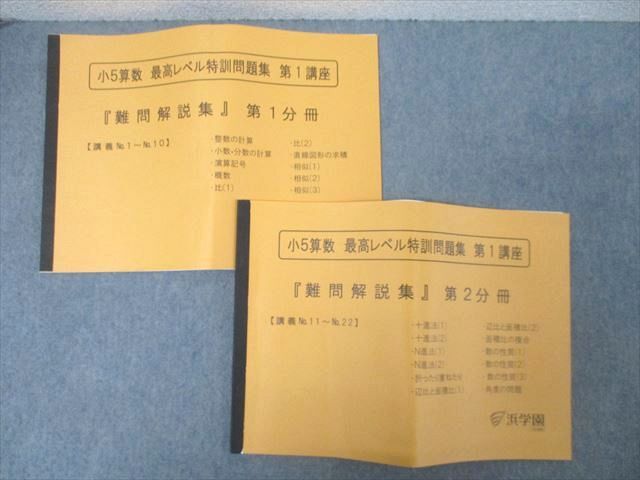 小5算数 最高レベル特訓問題集 第1講座
『難問解説集』 第1分冊
【講義No.1～No.10】
・整数の計算
・小数・分数の計算
・演算記号
・概数
・比(1)
・比(2)
・直線図形の求積
・相似(1)
・相似(2)
・相似(3)
小5算数 最高レベル特訓問題集 第1講座
『難問解説集』 第2分冊
【講義No.11～No.22】
・十進法(1)
・十進法(2)
・N進法(1)
・N進法(2)
・折ったり重ねたり
・辺比と面積比(1)
・辺比と面積比(2)
・面積比の複合
・数の性質(1)
・数の性質(2)
・数の性質(3)
・角度の問題
浜学園